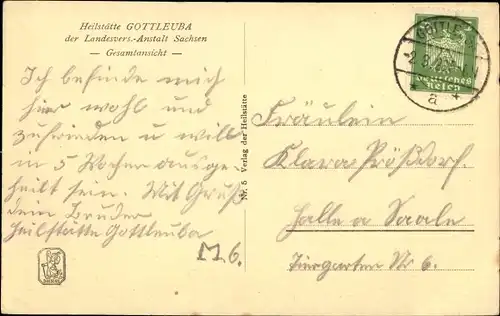 Heilstätte GOTTLEUBA
der Landesvers.-Anstalt Sachsen
— Gesamtansicht —
Ich befinde mich
hier wohl und
zufrieden u will
in 5 Wochen ausge-
heilt sein. Mit Gruß
dein Bruder
Heilstätte Gottleuba
M 6.
Nr. 5 Verlag der Heilstätte
GOTTLEUBA
Deutsches
Reich
a
Fräulein
Klara Prößdorf
Halle a Saale
Tiergarten Nr 6.